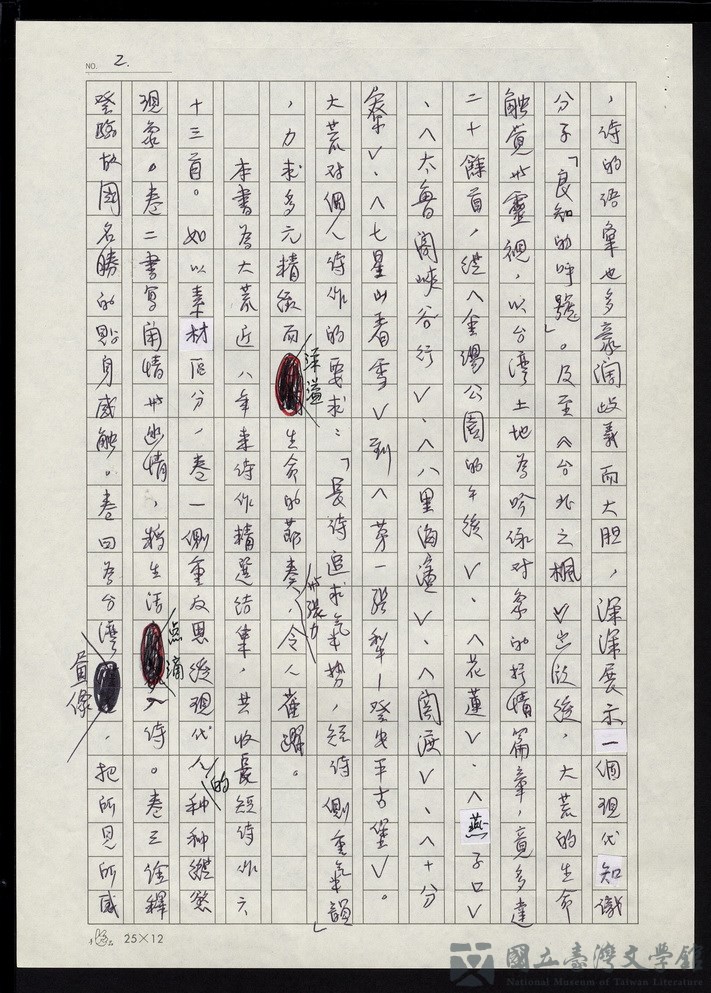 NO. 2.
，詩的語彙也多豪闊歧義而大胆，深深展示一個現代知識
分子「良知的呼號」。及至〈台北之楓〉出版後，大荒的生命
觸覺與靈視，以台湾土地為吟咏对象的抒情篇章，竟多達
二十餘首，從〈金陽公園的午後〉、〈花蓮〉、〈燕子口〉
、〈太魯閣峽谷行〉、〈八里海灘〉、〈闊渡〉、〈十分
寮〉、〈七星山春雪〉到〈第一張犁—登安平古堡〉。
大荒对個人詩作的要求：「長詩追求氣勢，短詩側重氣韻」
，力求多元精緻而洋溢生命的節奏與張力，令人雀躍。
本書為大荒近八年來詩作精選結集，共收長短詩作六
十三首。如以素材區分，卷一側重反思後現代人的种种縱慾
現象。卷二書寫閒情與幽情，將生活点滴入詩。卷三詮釋
登臨故國名勝的貼身感触。卷四為台湾畫像，把所見所感
25×12
國立臺灣文學館
National Museum of Taiwan Literature